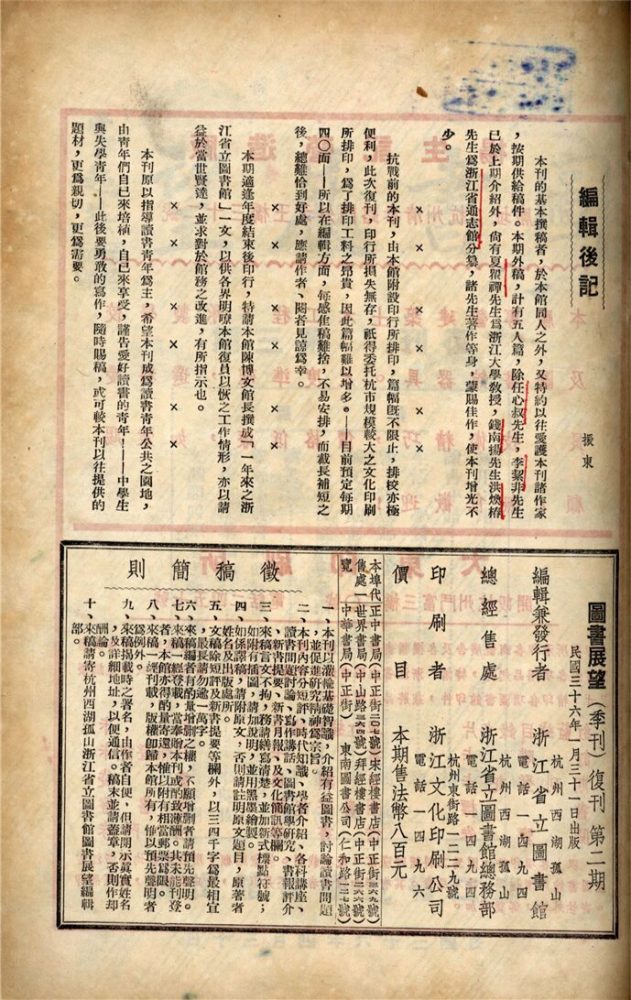 編輯後記
振東
本刊的基本撰稿者，於本館同人之外，又特約以往愛護本刊諸作家
，按期供給稿件。本期外稿，計有五人篇，除任心叔先生，李絜非先生
已於上期介紹外，尙有夏瞿禪先生為浙江大學敎授，錢南揚先生洪煥椿
先生為浙江省通志館分纂，諸先生著作等身，蒙賜佳作，使本刊增光不
少。
×　×　×　×　×
抗戰前的本刊，由本館附設印行所排印，篇幅旣不限止，排校亦極
便利，此次復刊，印行所損失無存，祇得委托杭市規模較大之文化印刷
所排印，爲了排印工料之昂貴，因此篇幅難以增多。——目前預定每期
四〇面——所以在編輯方面，每感佳稿難捨，不易安排，而截長補短之
後，總難恰到好處，應請作者、閱者見諒爲幸。
×　×　×　×　×
本期適逢年度結束後印行，特請本館陳博文館長撰成「一年來之浙
江省立圖書館」一文，以供各界明瞭本館復員以恢之工作情形，亦以請
益於當世賢達，並求對於館務之改進，有所指示也。
×　×　×　×　×
本刊原以指導讀書靑年爲主，希望本刊成爲讀書靑年公共之園地，
由靑年們自己來培植，自己來享受，謹告愛好讀書的靑年！——中學生
與失學靑年——此後要勇敢的寫作，隨時賜稿，或可較本刊以往提供的
題材，更爲親切，更爲需要。
圖書展望（季刊）復刊第二期
民國三十六年一月三十一日出版
編輯兼發行者　浙江省立圖書館
杭州西湖孤山
電話一四九四
總經售處　浙江省立圖書館總務部
杭州西湖孤山
電話一四九四
印刷者　浙江文化印刷公司
杭州東街路一二二九號
電話一四九六
價目　本期售法幣八百元
本埠代售處
正中書局（中正街二〇七號）宋經樓書店（中正街三六九號）
世界書局（中山路三三四號）拜經樓書店（中正街二六六號）
中華書局（中正街）東南圖書公司（仁和路二二七號）
徵稿簡則
一、本刊以灌輸基礎智識，介紹有益圖書，討論讀書問題
，並促進研究精神爲宗旨。
二、本刊內容分短評、時代知識、學者介紹、各科講座、
讀書問題討論、寫作講話、圖書館學研究、書報評介
、新書提要、新書月報、及文化簡訊等欄。
三、來稿言文不拘，務請繕寫清楚，並加新式標點符號；
如附有插圖，請加說明，並用墨墨繪製。
四、如係譯稿，請附原文，否則請註明原文題目，原著者
姓名及出版處所。
五、文稿除短評及新書提要等欄外，以三四千字爲最相宜
，最長請勿逾一萬字。
六、來稿編者有酌量增刪之權，不願增刪者請預先聲明。
七、來稿一經登載，當奉酬本刊或酌致薄酬。其未能刊登
者，本館亦得酌量寄還，惟以附有相當郵票爲限。
八、來稿一經刊載，版權卽歸本館所有，惟以預先聲明者
爲例外。
九、來稿揭載時之署名，由作者自便，但請開示眞實姓名
，及詳細地址，以便通信。稿末並請蓋章，否則作却
酬論。
十、來稿請寄杭州西湖孤山浙江省立圖書館圖書展望編輯
部。